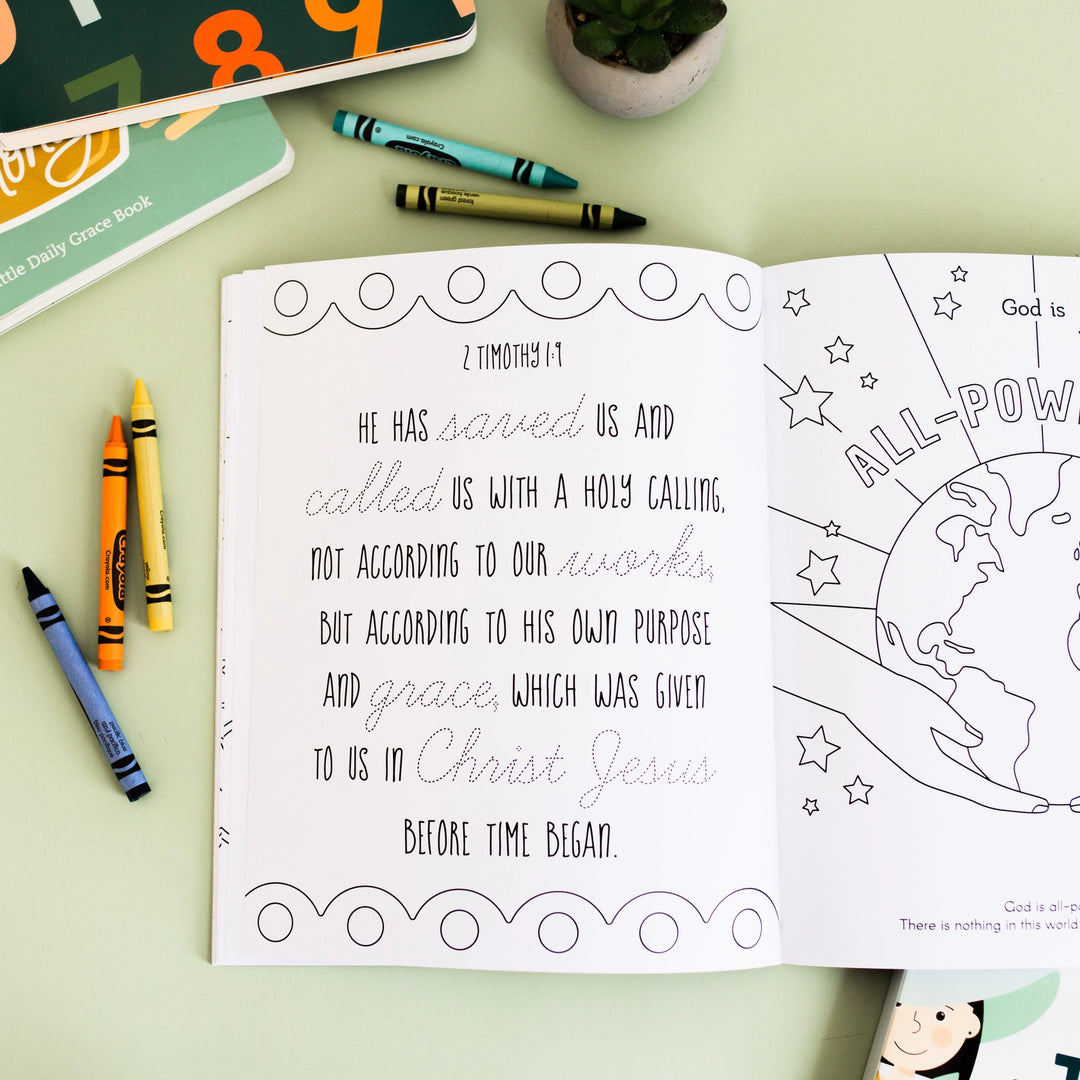 7 8 9
ttle Daily Grace Book
Crayola
Crayola.com
forest green
verde bosque
2 TIMOTHY 1:9
HE HAS saved US AND
called US WITH A HOLY CALLING,
NOT ACCORDING TO OUR works,
BUT ACCORDING TO HIS OWN PURPOSE
AND grace, WHICH WAS GIVEN
TO US IN Christ Jesus
BEFORE TIME BEGAN.
God is
ALL-POW
God is all-po
There is nothing in this world
Crayola
Crayola.com
Crayola.com
yellow